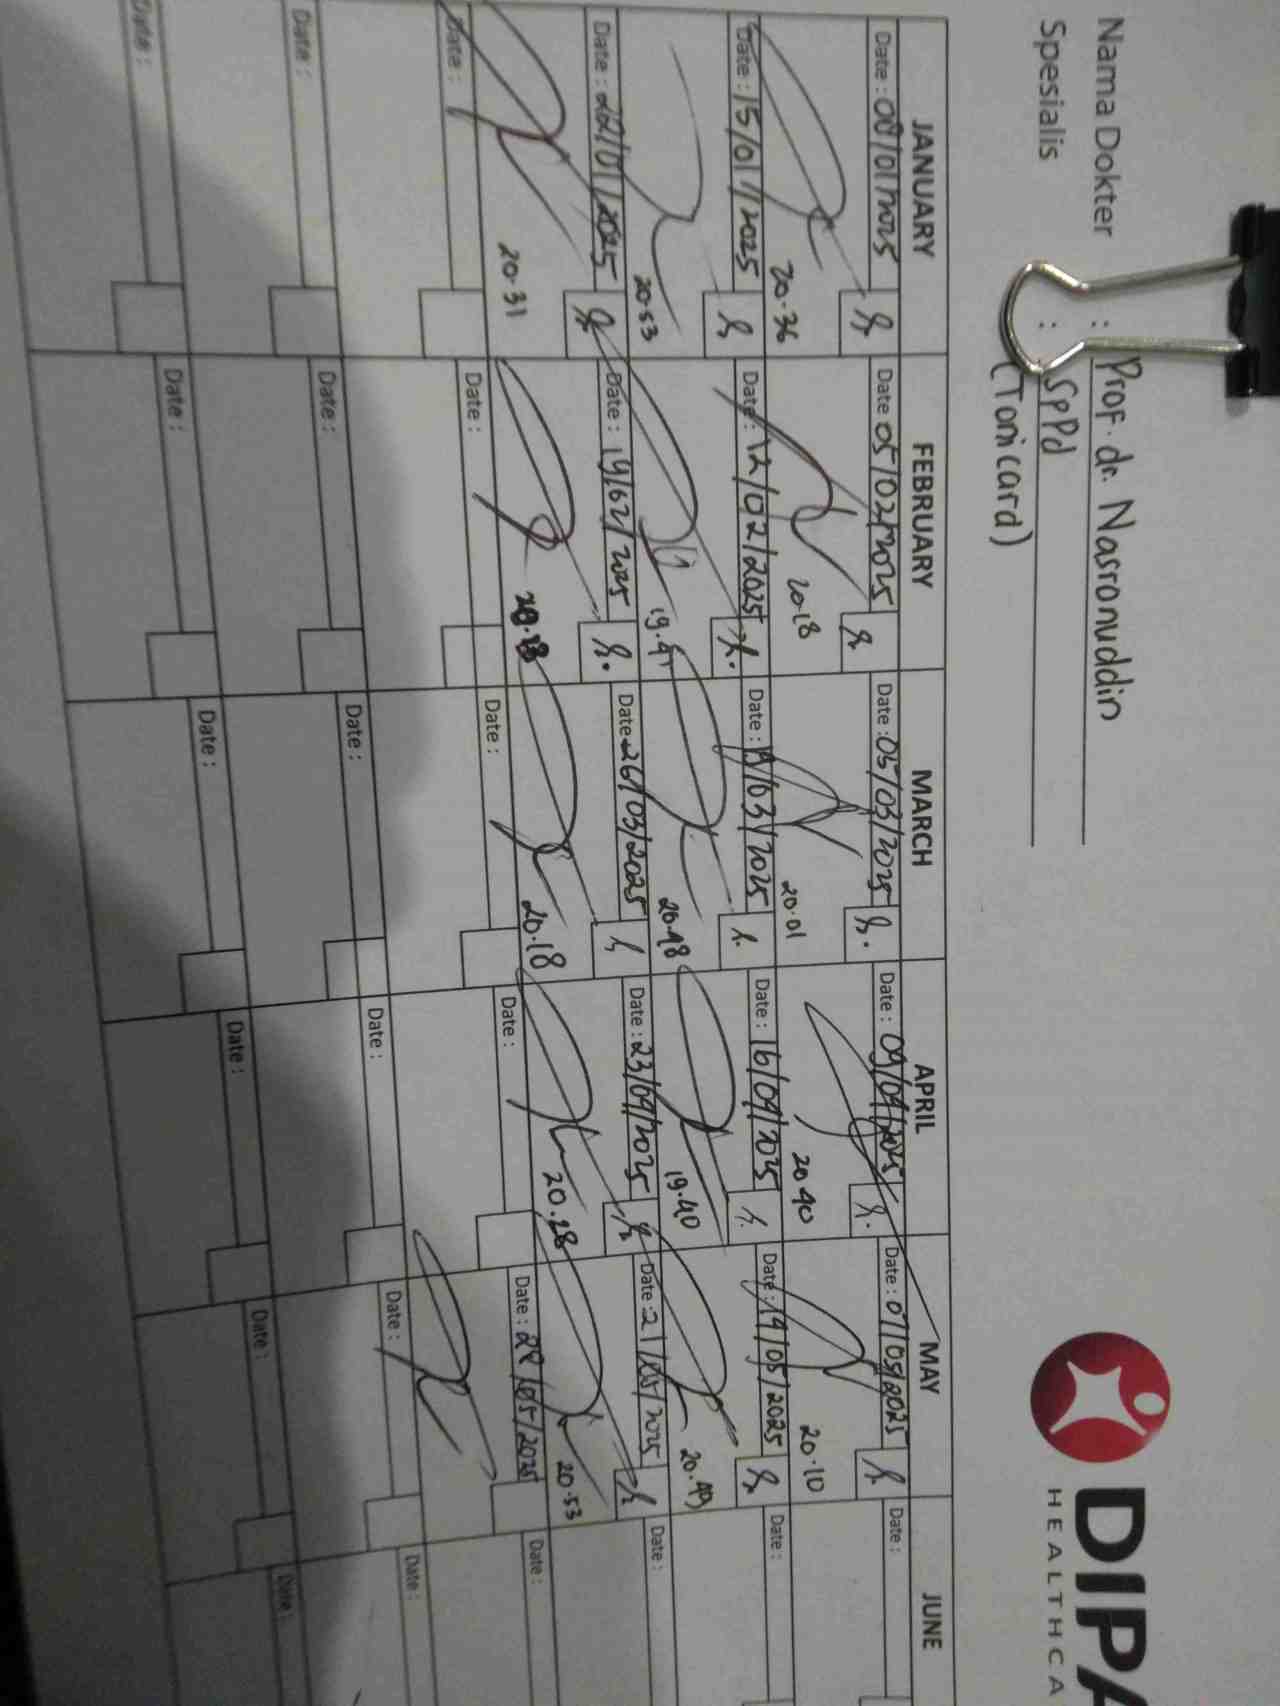 Nama Dokter : Prof. dr. Nasronuddin
Spesialis : SpPd
(Tonicard)
DIPA
HEALTHCA
JANUARY FEBRUARY MARCH APRIL MAY JUNE
Date : 08/01/2025 Date 05/02/2025 Date : 05/03/2025 Date : 09/04/2025 Date : 07/05/2025 Date :
20.36 20.18 20.01 20.40 20.10
Date : 15/01/2025 Date : 12/02/2025 Date : 19/03/2025 Date : 16/04/2025 Date : 14/05/2025 Date :
20.53 19.41 20.48 19.40 20.49
Date : 22/01/2025 Date : 19/02/2025 Date 26/03/2025 Date : 23/04/2025 Date : 21/05/2025 Date :
20.31 20.18 20.28 20.53
Date : Date : Date : Date : Date : 28/05/2025 Date :
Date : Date : Date : Date : Date : Date :
Date : Date : Date : Date : Date : Date :